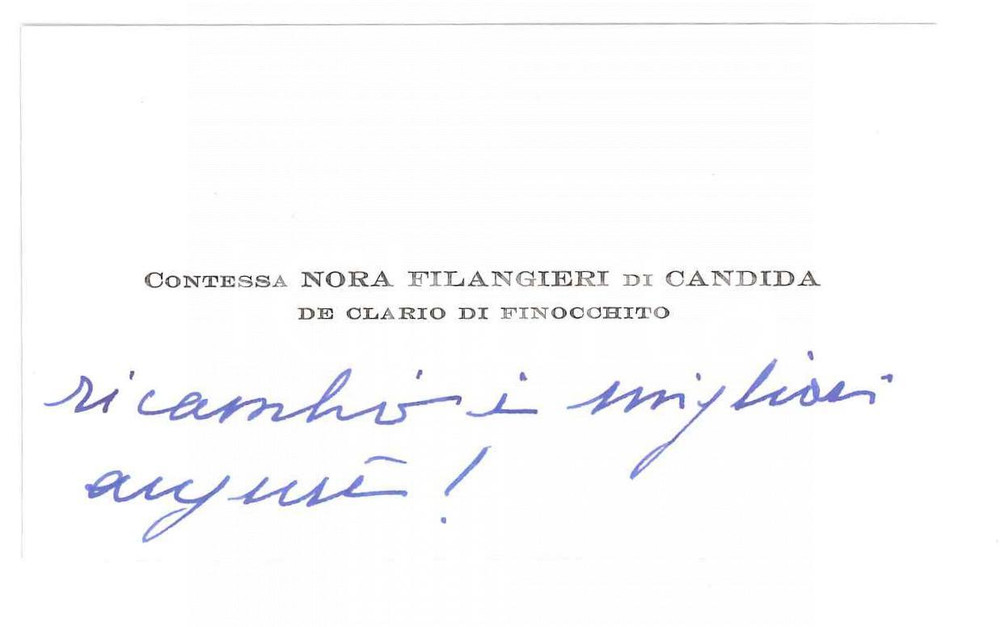 Contessa NORA FILANGIERI DI CANDIDA
DE CLARIO DI FINOCCHITO
ricambio i migliori
auguri!